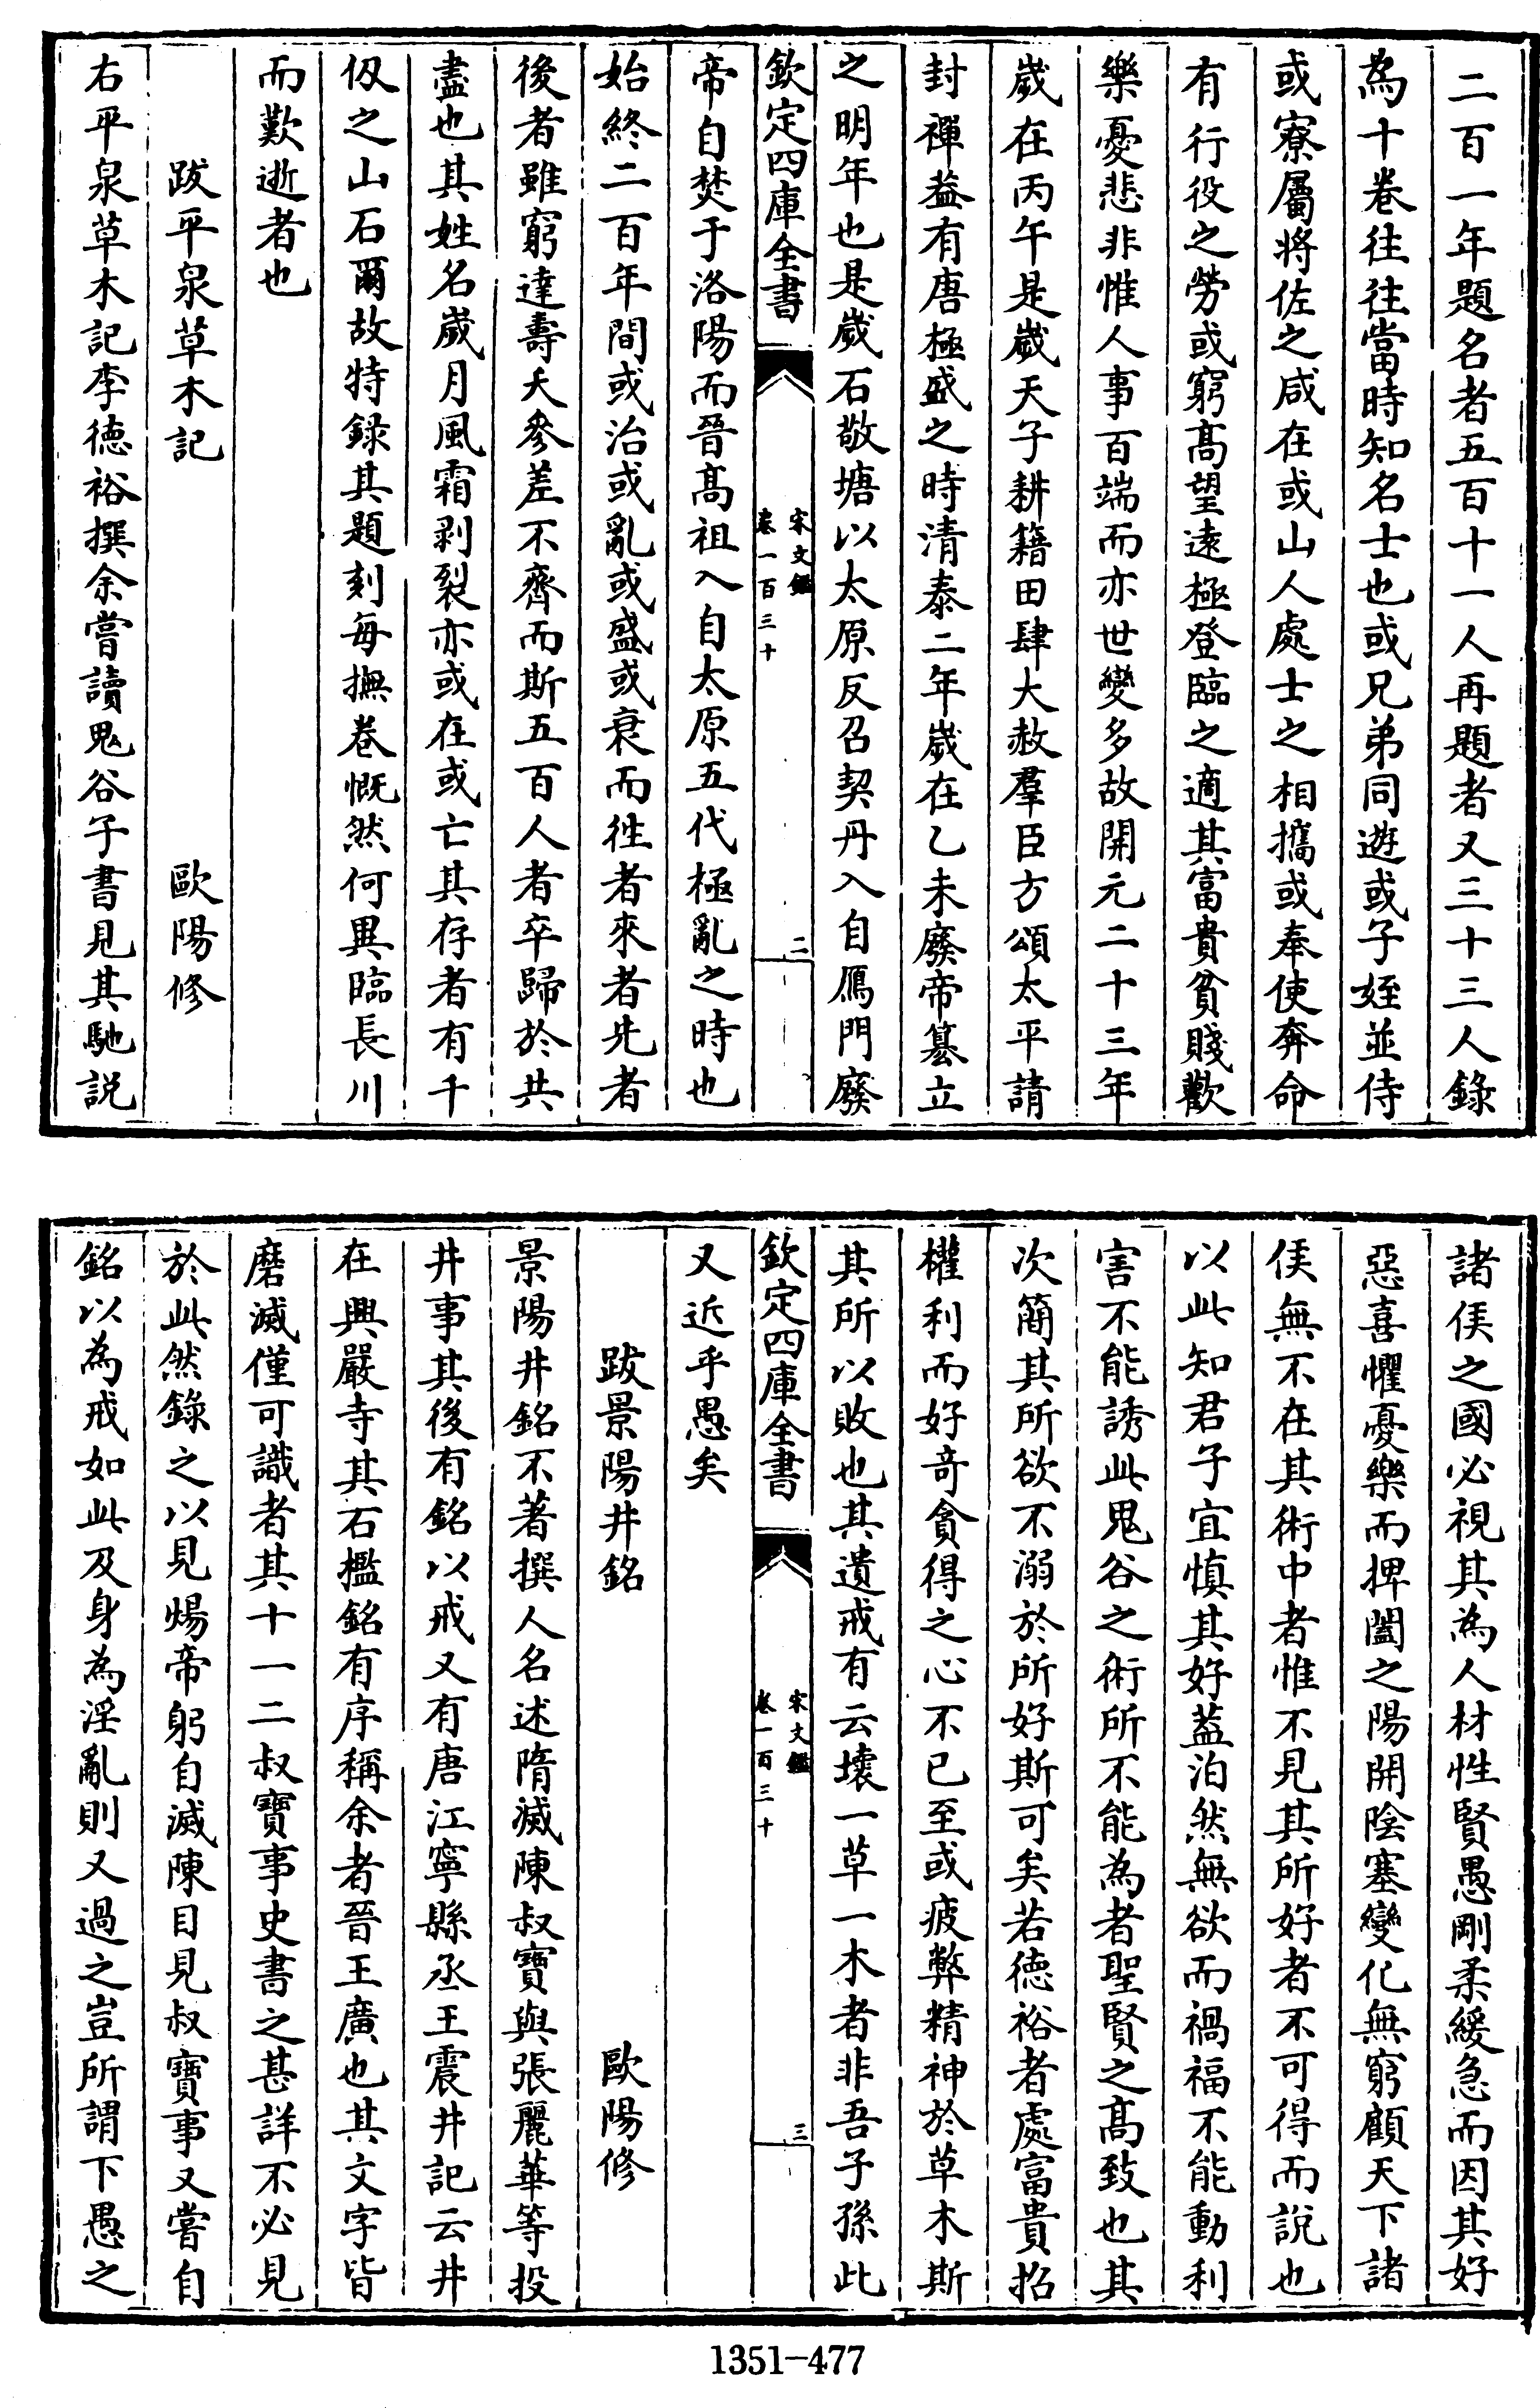 二百一年題名者五百十一人再題者又三十三人錄
為十卷往往當時知名士也或兄弟同遊或子姪並侍
或寮屬將佐之咸在或山人處士之相攜或奉使奔命
有行役之勞或窮髙望遠極登臨之適其富貴貧賤歡
樂憂悲非惟人事百端而亦世變多故開元二十三年
歲在丙午是歲天子耕籍田肆大赦羣臣方頌太平請
封禪葢有唐極盛之時清泰二年歲在乙未廢帝篡立
之明年也是歲石敬塘以太原反召契丹入自鴈門廢
欽定四庫全書
宋文鑑
卷一百三十
二
帝自焚于洛陽而晉髙祖入自太原五代極亂之時也
始終二百年間或治或亂或盛或衰而徃者來者先者
後者雖窮達壽夭參差不齊而斯五百人者卒歸於共
盡也其姓名歲月風霜剥裂亦或在或亡其存者有千
仭之山石爾故特錄其題刻每撫卷慨然何異臨長川
而歎逝者也
跋平泉草木記
歐陽修
右平泉草木記李徳裕撰余嘗讀鬼谷子書見其馳説
諸侯之國必視其為人材性賢愚剛柔緩急而因其好
惡喜懼憂樂而捭闔之陽開陰塞變化無窮顧天下諸
侯無不在其術中者惟不見其所好者不可得而說也
以此知君子宜慎其好葢泊然無欲而禍福不能動利
害不能誘此鬼谷之術所不能為者聖賢之髙致也其
次簡其所欲不溺於所好斯可矣若徳裕者處富貴招
權利而好奇貪得之心不已至或疲弊精神於草木斯
其所以敗也其遺戒有云壞一草一木者非吾子孫此
欽定四庫全書
宋文鑑
卷一百三十
三
又近乎愚矣
跋景陽井銘
歐陽修
景陽井銘不著撰人名述隋滅陳叔寶與張麗華等投
井事其後有銘以戒又有唐江寧縣丞王震井記云井
在興嚴寺其石檻銘有序稱余者晉王廣也其文字皆
磨滅僅可識者其十一二叔寶事史書之甚詳不必見
於此然錄之以見煬帝躬自滅陳目見叔寶事又嘗自
銘以為戒如此及身為淫亂則又過之豈所謂下愚之
1351-477